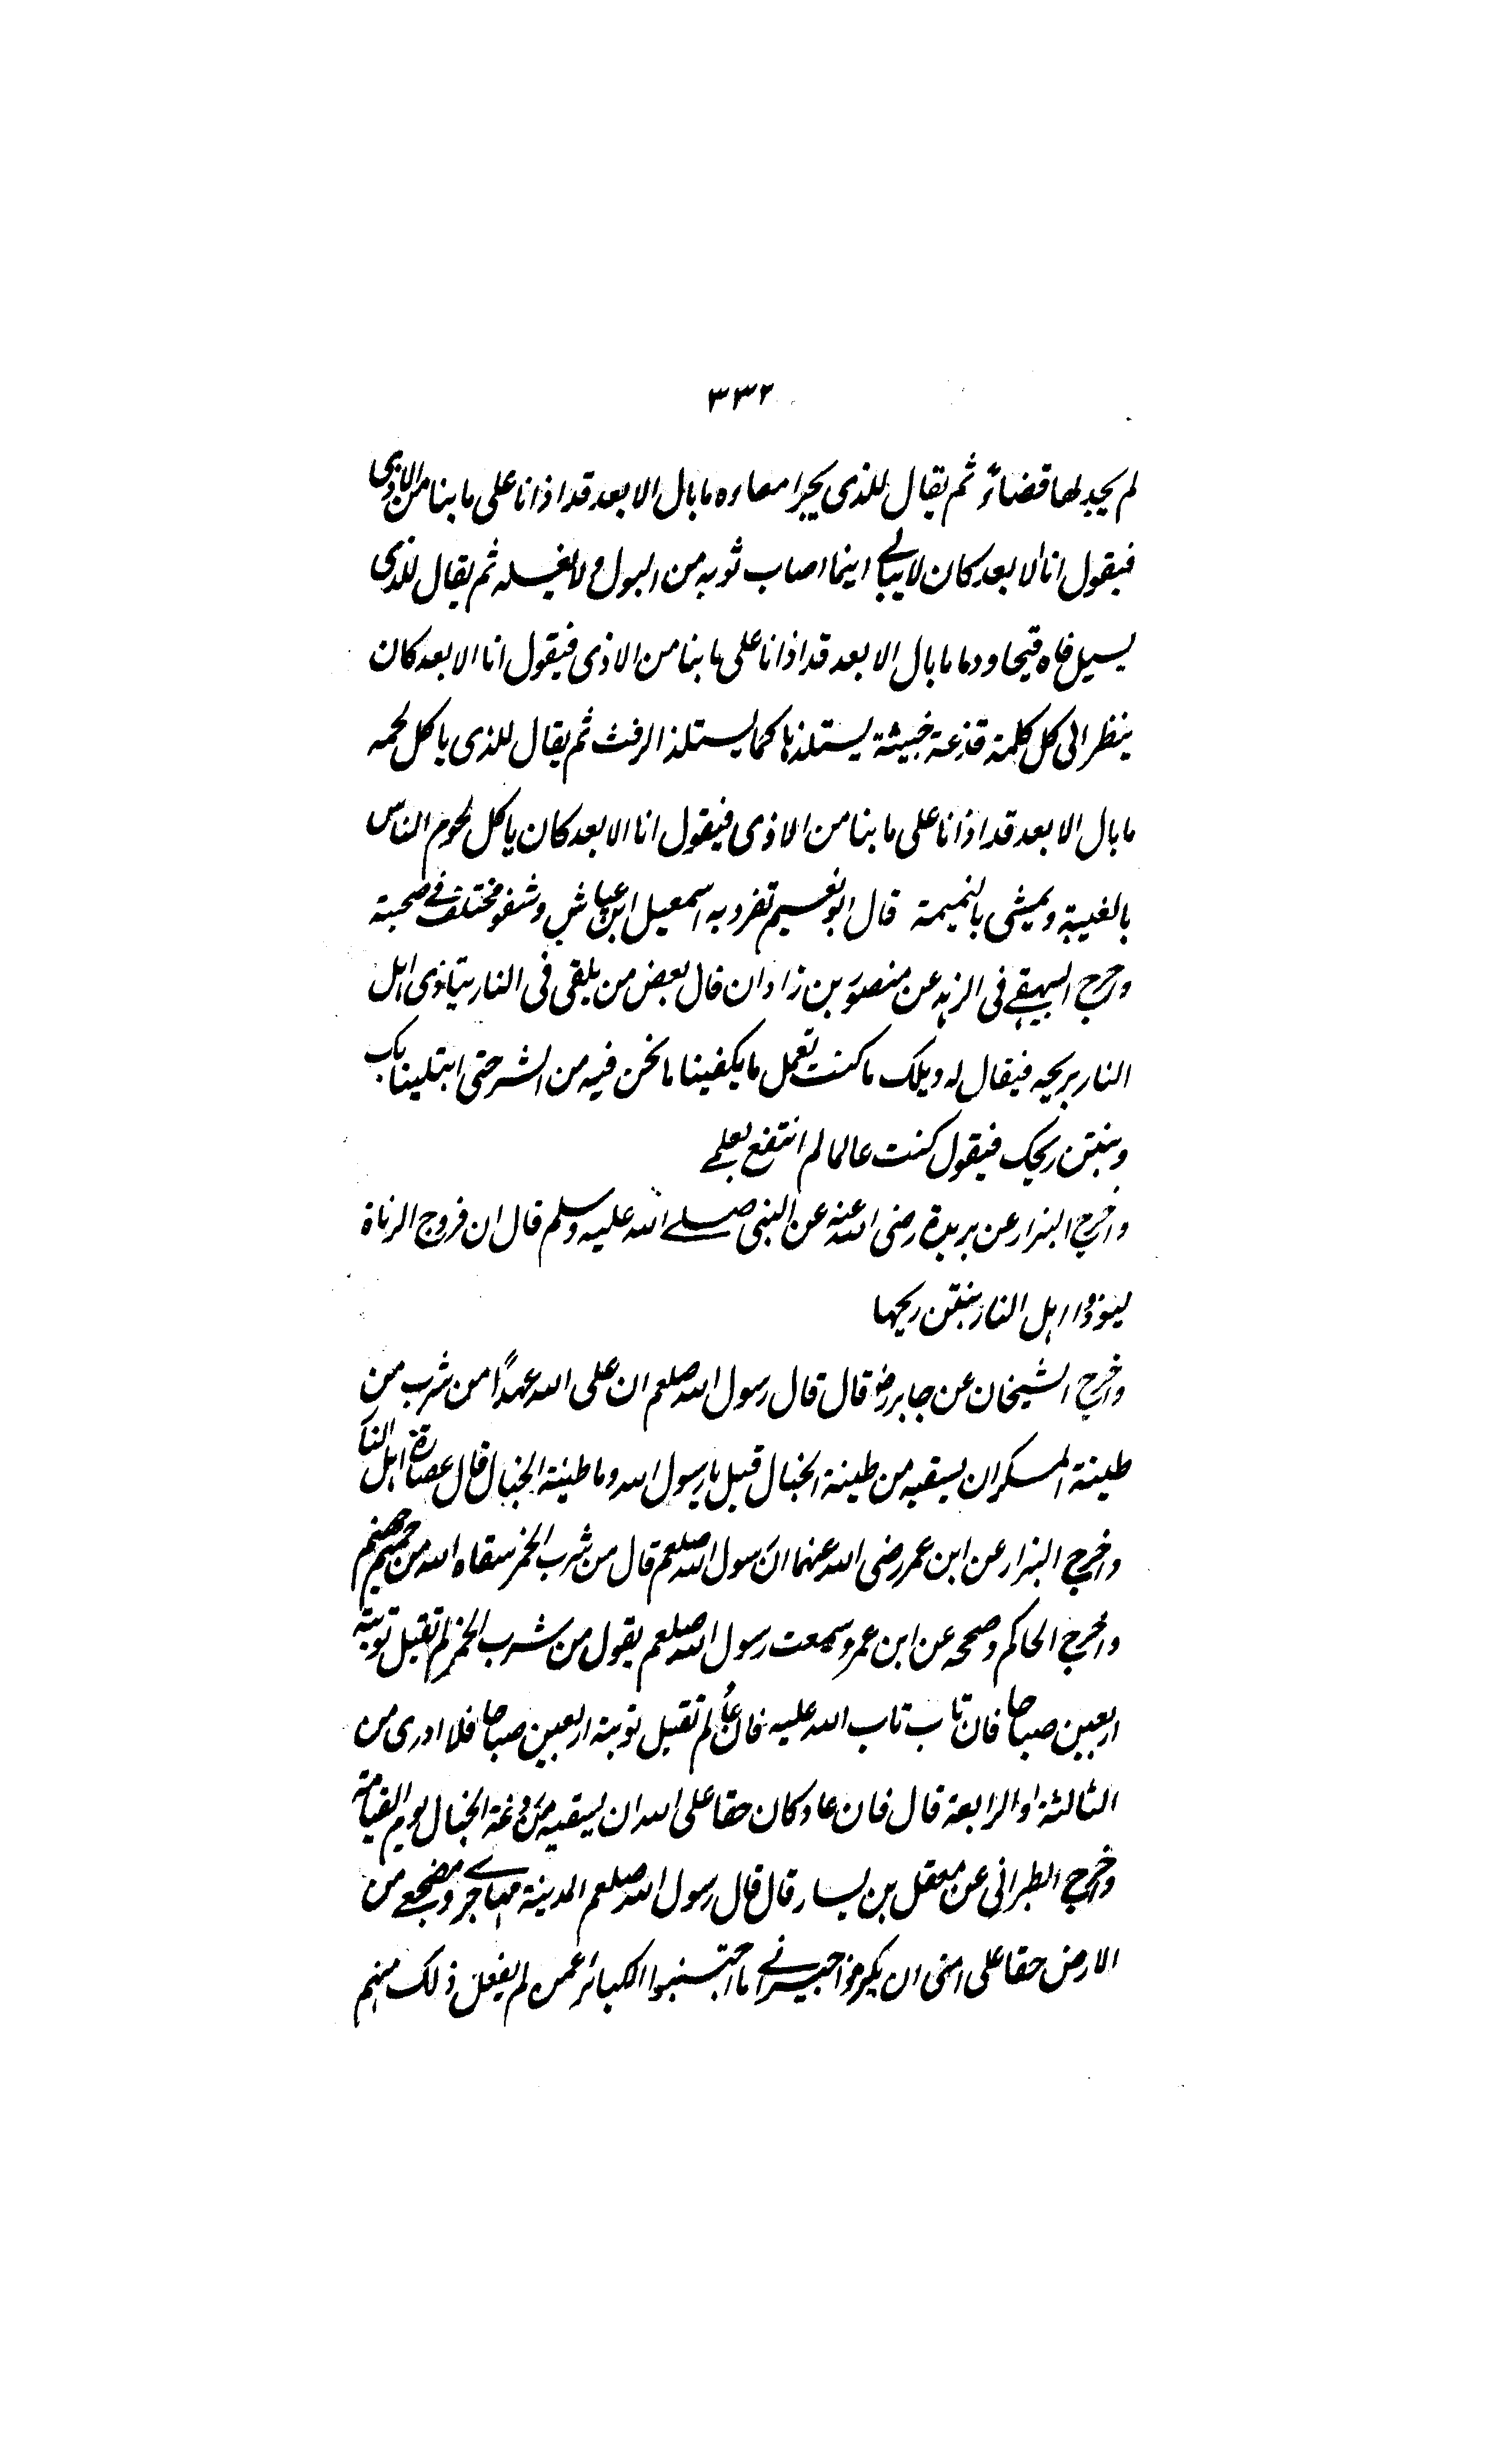 ٣٣٢
لم يجد لها قضاءً ثم يقال للذى يجر امعاءه ما بال الابعد قد اذانا على ما بنا من الاذى
فيقول ان الابعد كان لا يبالے اينما اصاب ثوبه من البول و لا يغسله ثم يقال للذى
يسيل فاه قيحا و دما ما بال الابعد قد اذانا على ما بنا من الاذى فيقول انا الابعد كان
ينظر الى كل كلمة قذعة خبيثة يستلذها كما يستلذ الرفث ثم يقال للذى ياكل لحمه
ما بال الابعد قد اذانا على ما بنا من الاذى فيقول انا الابعد كان ياكل لحوم الناس
بالغيبة و يمشى بالنميمة قال ابو نعيم تفرد به اسمعيل ابن عياش و شفو مختلف فے صحبة
و خرج البيهقے فى الزهد عن منصور بن زاذان قال بعض من يلقى فى النار يتاذى اهل
النار بريحه فيقال له ويلك ما كنت تعمل ما يكفينا ما نحن فيه من الشر حتى ابتلينا بك
و بنتن ريحك فيقول كنت عالما لم انتفع بعلمے
و اخرج البزار عن بريدة رضى الله عنه عن النبى صلے الله عليه وسلم قال ان فروج الزناة
ليؤذوا اهل النار بنتن ريحها
و اخرج الشيخان عن جابر رضـ قال قال رسول الله صلعم ان على الله عهدًا من شرب من
طينة المسكر ان يسقيه من طينة الخبال قيل يا رسول الله و ما طينة الخبال قال عصارة اهل النار
و اخرج البزار عن ابن عمر رضى الله عنهما ان رسول الله صلعم قال من شرب الخمر سقاه الله من حميم جهنم
و اخرج الحاكم و صححه عن ابن عمرو سمعت رسول الله صلعم يقول من شرب الخمر لم تقبل توبته
اربعين صباحا فان تاب تاب الله عليه فان عاد لم تقبل توبة اربعين صباحا فلا ادرى من
الثالثة او الرابعة قال فان عاد كان حقا على الله ان يسقيه من ردغة الخبال يوم القيامة
و خرج الطبرانى عن معقل بن يسار قال قال رسول الله صلعم المدينة مهاجرے و مضجعے من
الارض حقا على امتى ان يكرموا جيرانے ما اجتنبوا الكبائر عمن لم يفعل ذلك منهم